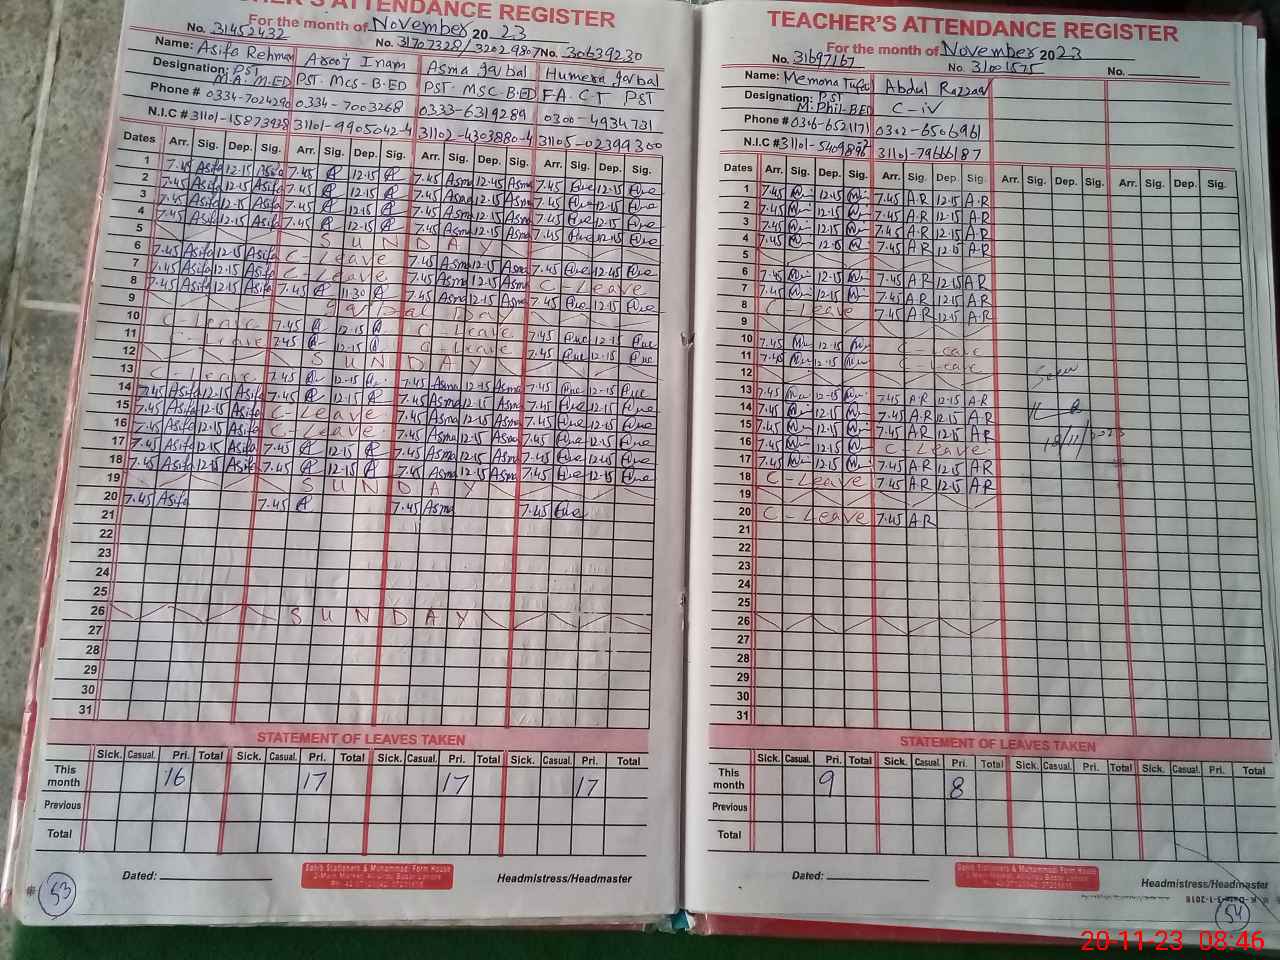 HER'S ATTENDANCE REGISTER
For the month of November 2023
No. 31452432 No. 31707328/32029807 No. 30639230
Name: Asifa Rehman Arooj Inam Asma Iqbal Humera Iqbal
Designation: PST M.A. M.ED PST. Mcs-B-ED PST. MSC-B-ED F.A. C.T PST
Phone # 0334-7024290 0334-7003268 0333-6319289 0300-4934731
N.I.C # 31101-15873938 31101-9905042-4 31102-4303880-4 31105-02399300
Dates Arr. Sig. Dep. Sig. Arr. Sig. Dep. Sig. Arr. Sig. Dep. Sig. Arr. Sig. Dep. Sig.
1 7.45 Asifa 12-15 Asifa 7.45 12-15
2 7.45 Asifa 12-15 Asifa 7.45 12-15 7.45 Asma 12-45 Asma 7.45 12-15
3 7.45 Asifa 12-15 Asifa 7.45 12-15 7.45 Asma 12-15 Asma 7.45 12-15
4 7.45 Asifa 12-15 Asifa 12-15 7.45 Asma 12-15 Asma 7.45 12-15
5 SUNDAY
6 7.45 Asifa 12-15 Asifa C-Leave 7.45 Asma 12-15 Asma 7.45 12-45
7 7.45 Asifa 12-15 Asifa C-Leave 7.45 Asma 12-15 Asma C-Leave
8 7.45 Asifa 12-15 Asifa 7.45 11.30 7.45 Asma 12-15 Asma 7.45 12-15
9 Iqbal Day
10 C-Leave 7.45 12-15 C-Leave 7.45 12-15
11 C-Leave 7.45 12-15 C-Leave 7.45 12-15
12 SUNDAY
13 C-Leave 7.45 12-15 7.45 Asma 12-15 Asma 7.45 12-15
14 7.45 Asifa 12-15 Asifa 7.45 12-15 7.45 Asma 12-15 Asma 7.45 12-15
15 7.45 Asifa 12-15 Asifa C-Leave 7.45 Asma 12-15 Asma 7.45 12-15
16 7.45 Asifa 12-15 Asifa C-Leave 7.45 Asma 12-15 Asma 7.45 12-15
17 7.45 Asifa 12-15 Asifa 7.45 12-15 7.45 Asma 12-15 Asma 7.45 12-15
18 7.45 Asifa 12-15 Asifa 7.45 12-15 7.45 Asma 12-15 Asma 7.45 12-15
19 SUNDAY
20 7.45 Asifa 7.45 7.45 Asma 7.45
21
22
23
24
25
26 SUNDAY
27
28
29
30
31
STATEMENT OF LEAVES TAKEN
Sick. Casual. Pri. Total Sick. Casual. Pri. Total Sick. Casual. Pri. Total Sick. Casual. Pri. Total
This month 16 17 17 17
Previous
Total
Dated: Headmistress/Headmaster
53
TEACHER'S ATTENDANCE REGISTER
For the month of November 2023
No. 31697167 No. 31001575 No.
Name: Memona Abdul Razzaq
Designation: PST M.Phil-BED C-iV
Phone # 0346-6521171 0302-6506961
N.I.C # 31101-5409896 31101-7966187
Dates Arr. Sig. Dep. Sig. Arr. Sig. Dep. Sig. Arr. Sig. Dep. Sig. Arr. Sig. Dep. Sig.
1 7.45 12-15 7.45 A.R 12-15 A.R
2 7.45 12-15 7.45 A.R 12-15 A.R
3 7.45 12-15 7.45 A.R 12-15 A.R
4 7.45 12-15 7.45 A.R 12-15 A.R
5
6 7.45 12-15 7.45 A.R 12-15 A.R
7 7.45 12-15 7.45 A.R 12-15 A.R
8 C-Leave 7.45 A.R 12-15 A.R
9
10 7.45 12-15 C-Leave
11 7.45 12-15 C-Leave
12
13 7.45 12-15 7.45 A.R 12-15 A.R
14 7.45 12-15 7.45 A.R 12-15 A.R
15 7.45 12-15 7.45 A.R 12-15 A.R
16 7.45 12-15 C-Leave
17 7.45 12-15 7.45 A.R 12-15 A.R
18 C-Leave 7.45 A.R 12-15 A.R
19
20 C-Leave 7.45 A.R
21
22
23
24
25
26
27
28
29
30
31
Seen
18/11/2023
STATEMENT OF LEAVES TAKEN
Sick. Casual. Pri. Total Sick. Casual. Pri. Total Sick. Casual. Pri. Total Sick. Casual. Pri. Total
This month 9 8
Previous
Total
Dated: Headmistress/Headmaster
54
20-11-23 08:46